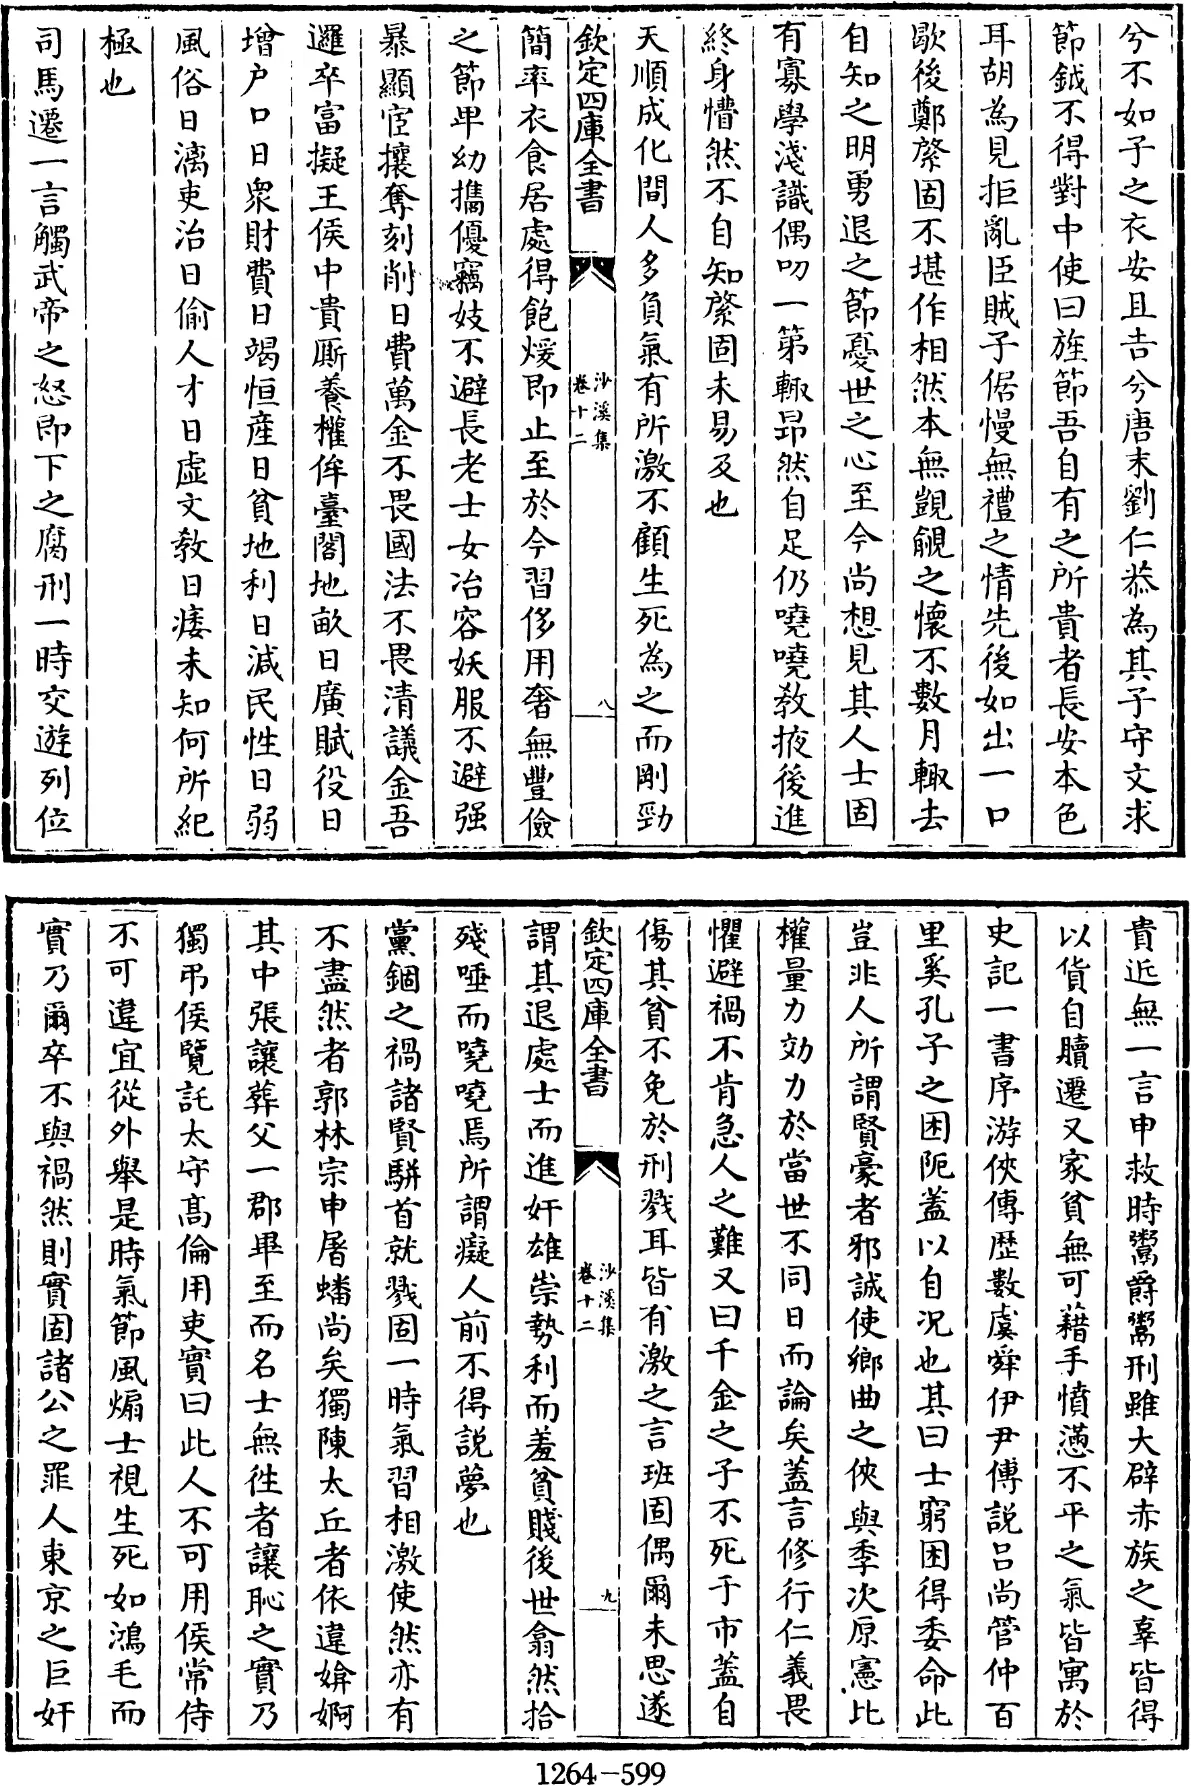 兮不如子之衣安且吉兮唐末劉仁恭為其子守文求
節鉞不得對中使曰旌節吾自有之所貴者長安本色
耳胡為見拒亂臣賊子倨慢無禮之情先後如出一口
歇後鄭綮固不堪作相然本無覬覦之懷不數月輙去
自知之明勇退之節憂世之心至今尚想見其人士固
有寡學淺識偶叨一第輙昻然自足仍嘵嘵教掖後進
終身懵然不自知綮固未易及也
天順成化間人多負氣有所激不顧生死為之而剛勁
欽定四庫全書
沙溪集
卷十二
八
簡率衣食居處得飽煖即止至於今習侈用奢無豐儉
之節卑幼擕優竊妓不避長老士女冶容妖服不避强
暴顯宦攘奪刻削日費萬金不畏國法不畏清議金吾
邏卒富擬王侯中貴厮養權侔臺閣地畝日廣賦役日
增户口日衆財費日竭恒産日貧地利日減民性日弱
風俗日漓吏治日偷人才日虛文教日痿未知何所紀
極也
司馬遷一言觸武帝之怒即下之腐刑一時交遊列位
貴近無一言申救時鬻爵鬻刑雖大辟赤族之辜皆得
以貨自贖遷又家貧無可藉手憤懣不平之氣皆寓於
史記一書序游俠傳歴數虞舜伊尹傅説吕尚管仲百
里奚孔子之困阨葢以自况也其曰士窮困得委命此
豈非人所謂賢豪者邪誠使鄉曲之俠與季次原憲比
權量力効力於當世不同日而論矣葢言修行仁義畏
懼避禍不肯急人之難又曰千金之子不死于市葢自
傷其貧不免於刑戮耳皆有激之言班固偶爾未思遂
欽定四庫全書
沙溪集
卷十二
九
謂其退處士而進奸雄崇勢利而羞貧賤後世翕然拾
殘唾而嘵嘵焉所謂癡人前不得説夢也
黨錮之禍諸賢駢首就戮固一時氣習相激使然亦有
不盡然者郭林宗申屠蟠尚矣獨陳太丘者依違媕婀
其中張讓葬父一郡畢至而名士無徃者讓恥之實乃
獨弔侯覽託太守髙倫用吏實曰此人不可用侯常侍
不可違宜從外舉是時氣節風煽士視生死如鴻毛而
實乃爾卒不與禍然則實固諸公之罪人東京之巨奸
1264-599